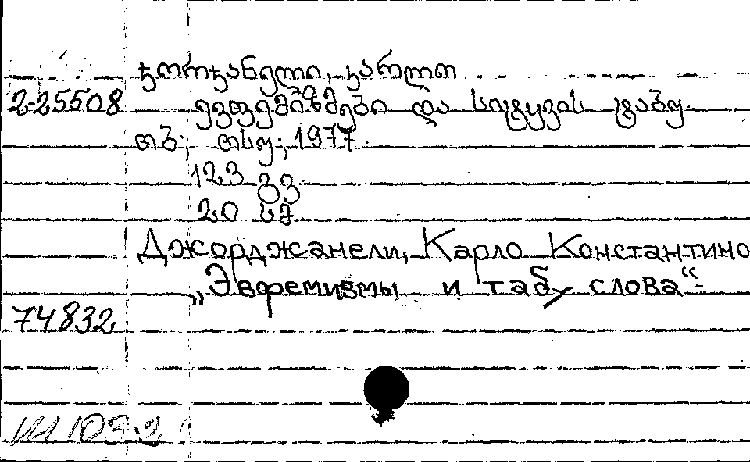 ჯორჯანელი, კარლო
2-25508 ევფემიზმები და სიტყვის ტაბუ.
თბ; თსუ; 1977.
123 გვ
20 სმ
Джорджанели, Карло Константино
„Эвфемизмы и табу слова“-
74832